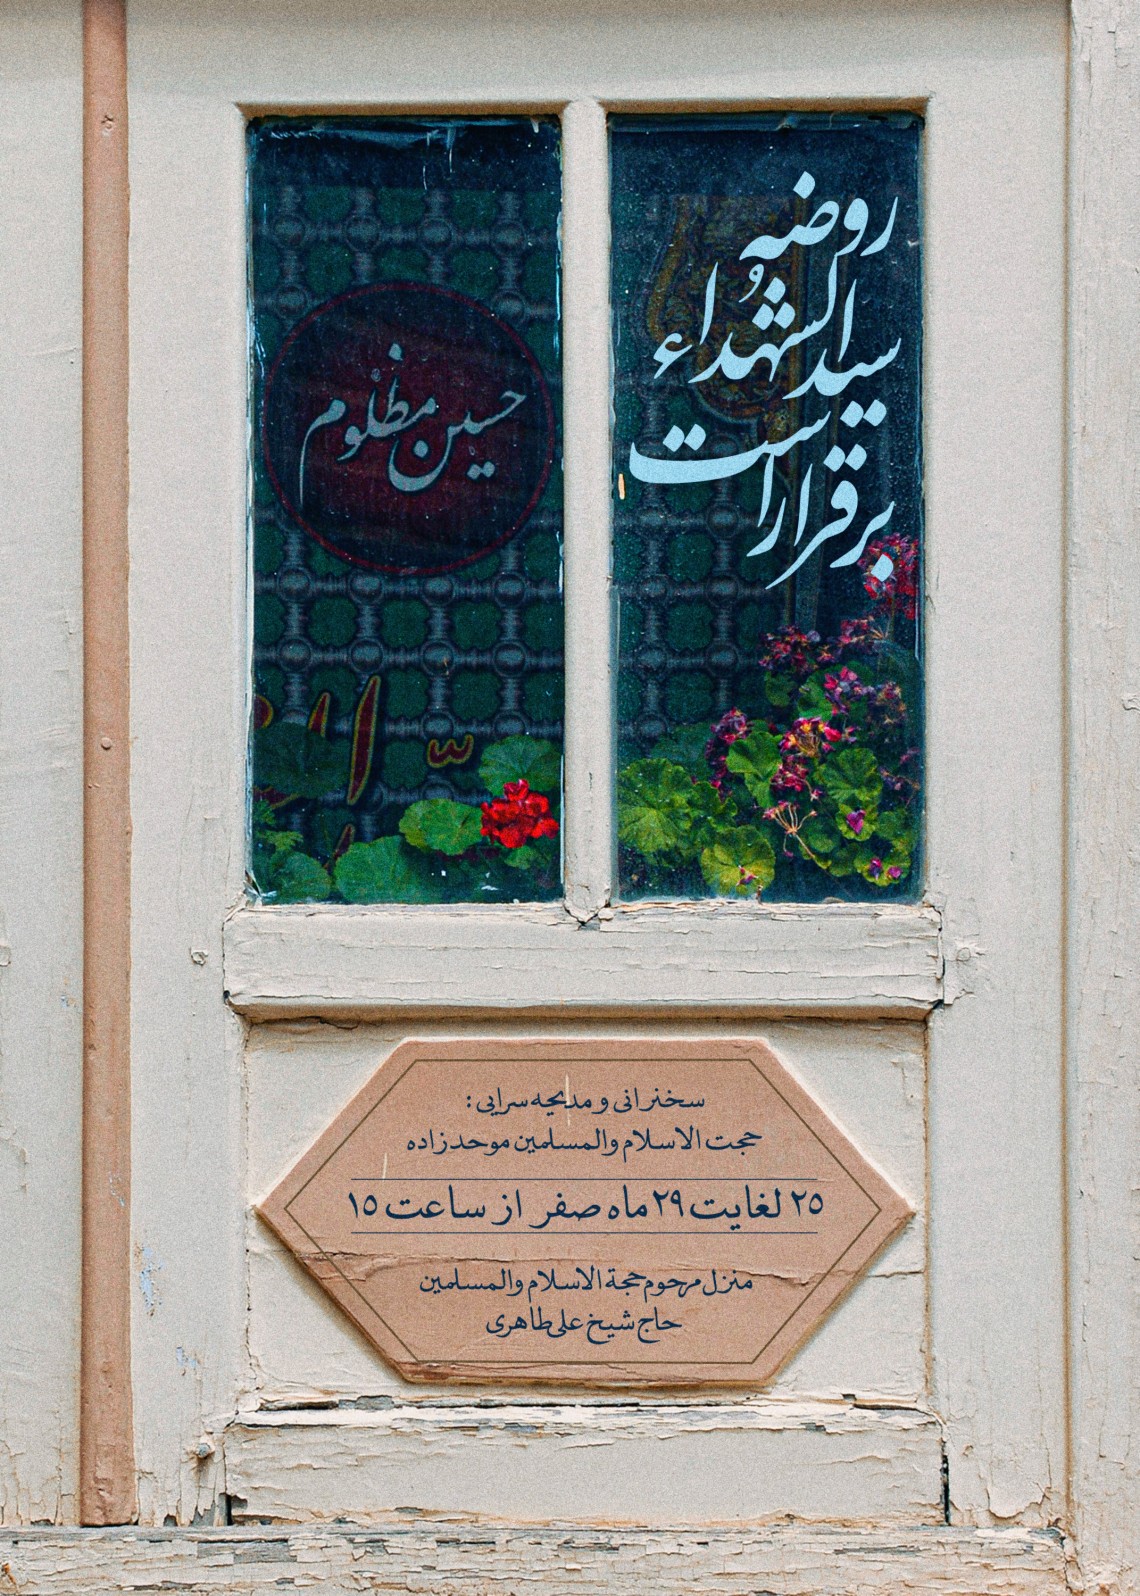 روضه
سیدالشهداء
برقرار است
حسین مظلوم
سخنرانی و مدیحه سرایی :
حجت الاسلام والمسلمین موحدزاده
۲۵ لغایت ۲۹ ماه صفر از ساعت ۱۵
منزل مرحوم حجة الاسلام والمسلمین
حاج شیخ علی طاهری